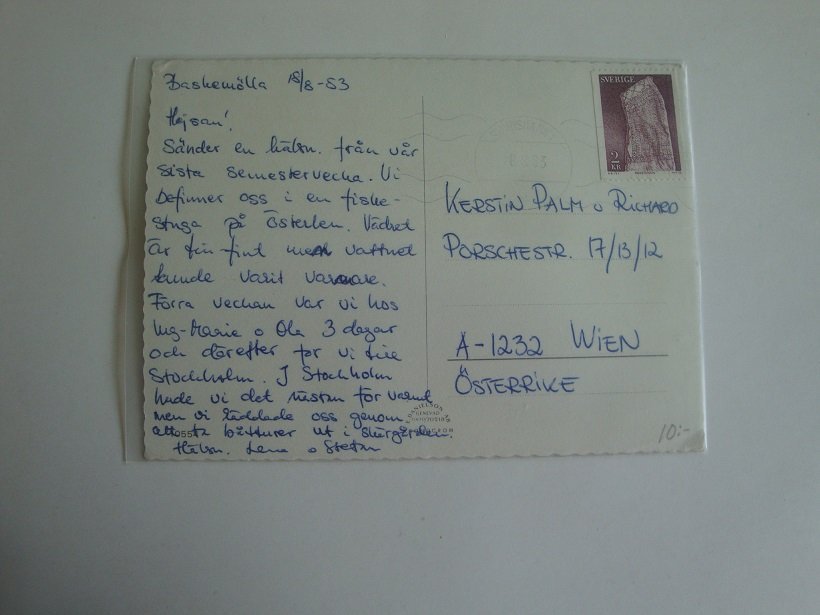 Baskemölla 18/8-83
Hejsan!
Sänder en hälsn. från vår
sista semestervecka. Vi
befinner oss i en fiske-
stuga på Österlen. Vädret
är fin-fint men vattnet
kunde varit varmare.
Förra veckan var vi hos
Ing-Marie o Ola 3 dagar
och därefter for vi till
Stockholm. I Stockholm
hade vi det nästan för varmt
men vi räddade oss genom
att ta båtturer ut i skärgården.
Hälsn. Lena o Stefan
SVERIGE
2
KR
KERSTIN PALM o RICHARD
PORSCHESTR. 17/13/12
A-1232 WIEN
ÖSTERRIKE
DANIELSON
10:-